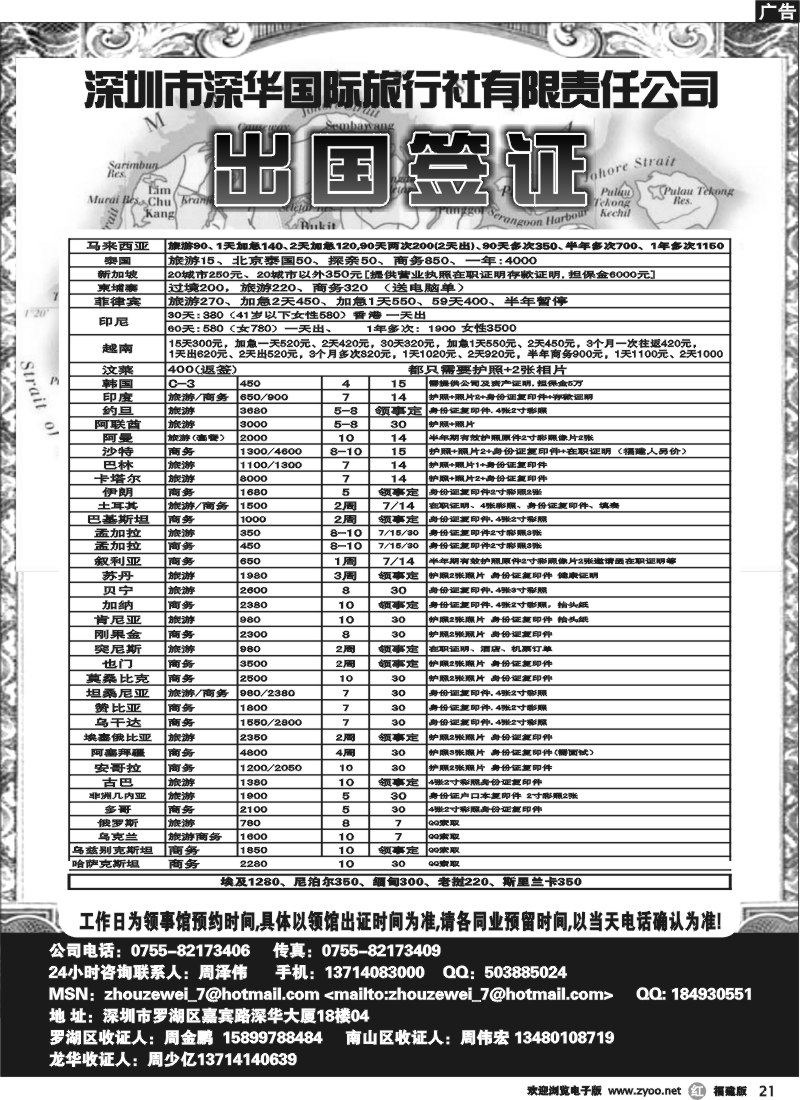 广告
深圳市深华国际旅行社有限责任公司
出国签证
Sembawang
Sarimbun Res.
Lim Chu Kang
Murai Res.
Kranji
Bukit
Punggol
Serangoon Harbour
Johore Strait
Pulau Tekong Kechil
Pulau Tekong Res.
1°20'
Strait of
马来西亚 旅游90、1天加急140、2天加急120,90天两次200(2天出)、90天多次350、半年多次700、1年多次1150
泰国 旅游15、北京泰国50、探亲50、商务850、一年:4000
新加坡 20城市250元、20城市以外350元[提供营业执照在职证明存款证明,担保金6000元]
柬埔寨 过境200,旅游220、商务320 （送电脑单）
菲律宾 旅游270、加急2天450、加急1天550、59天400、半年暂停
印尼 30天:380（41岁以下女性580）香港一天出
60天:580（女780）一天出、 1年多次: 1900 女性3500
越南 15天300元，加急一天520元、2天420元，30天320元，加急1天550元、2天450元，3个月一次往返420元，
1天出620元、2天出520元，3个月多次820元，1天1020元、2天920元，半年商务900元，1天1100元、2天1000
汶莱 400(返签) 都只需要护照+2张相片
韩国 C-3 450 4 15 需提供公司及资产证明,担保金5万
印度 旅游/商务 650/900 7 14 护照+照片2+身份证复印件+存款证明
约旦 旅游 3680 5-8 领事定 身份证复印件,4张2寸彩照
阿联酋 旅游 3000 5-8 30 护照+照片
阿曼 旅游(套餐) 2000 10 14 半年期有效护照原件2寸彩照像片2张
沙特 商务 1300/4600 8-10 15 护照+照片2+身份证复印件+在职证明（福建人另价）
巴林 旅游 1100/1300 7 14 护照+照片1+身份证复印件
卡塔尔 旅游 8000 7 14 护照+照片2+身份证复印件
伊朗 商务 1680 5 领事定 身份证复印件2寸彩照2张
土耳其 旅游/商务 1500 2周 7/14 在职证明、4张彩照、身份证复印件、填表
巴基斯坦 商务 1000 2周 领事定 身份证复印件,4张2寸彩照
孟加拉 旅游 350 8-10 7/15/30 身份证复印件2寸彩照3张
孟加拉 商务 450 8-10 7/15/30 身份证复印件2寸彩照3张
叙利亚 商务 650 1周 7/14 半年期有效护照原件2寸彩照像片2张邀请函在职证明等
苏丹 旅游 1980 3周 领事定 护照2张照片 身份证复印件 健康证明
贝宁 旅游 2600 8 30 身份证复印件,4张3寸彩照
加纳 商务 2380 10 领事定 身份证复印件,4张2寸彩照，抬头纸
肯尼亚 旅游 980 10 30 护照2张照片 身份证复印件 抬头纸
刚果金 商务 2300 8 30 护照2张照片 身份证复印件
突尼斯 旅游 980 2周 领事定 在职证明、酒店、机票订单
也门 商务 3500 2周 领事定 护照2张照片 身份证复印件
莫桑比克 商务 2500 10 30 护照2张照片 身份证复印件
坦桑尼亚 旅游/商务 980/2380 7 30 身份证复印件,4张2寸彩照
赞比亚 商务 1800 7 30 身份证复印件,4张2寸彩照
乌干达 商务 1550/2800 7 30 身份证复印件,4张2寸彩照
埃塞俄比亚 旅游 2350 2周 领事定 护照2张照片 身份证复印件
阿塞拜疆 商务 4800 4周 30 护照3张照片 身份证复印件(需面试)
安哥拉 商务 1200/2050 10 30 护照2张照片 身份证复印件
古巴 旅游 1380 10 领事定 4张2寸彩照身份证复印件
非洲几内亚 旅游 1900 5 30 身份证户口本复印件 2寸彩照2张
多哥 商务 2100 5 30 4张2寸彩照身份证复印件
俄罗斯 旅游 780 8 7 QQ索取
乌克兰 旅游商务 1600 10 7 QQ索取
乌兹别克斯坦 商务 1850 10 领事定 QQ索取
哈萨克斯坦 商务 2280 10 30 QQ索取
埃及1280、尼泊尔350、缅甸300、老挝220、斯里兰卡350
工作日为领事馆预约时间,具体以领馆出证时间为准,请各同业预留时间,以当天电话确认为准!
公司电话：0755-82173406 传真：0755-82173409
24小时咨询联系人：周泽伟 手机：13714083000 QQ：503885024
MSN：zhouzewei_7@hotmail.com <mailto:zhouzewei_7@hotmail.com> QQ: 184930551
地 址：深圳市罗湖区嘉宾路深华大厦18楼04
罗湖区收证人：周金鹏 15899788484 南山区收证人：周伟宏 13480108719
龙华收证人：周少亿13714140639
欢迎浏览电子版 www.zyoo.net 红 福建版 21